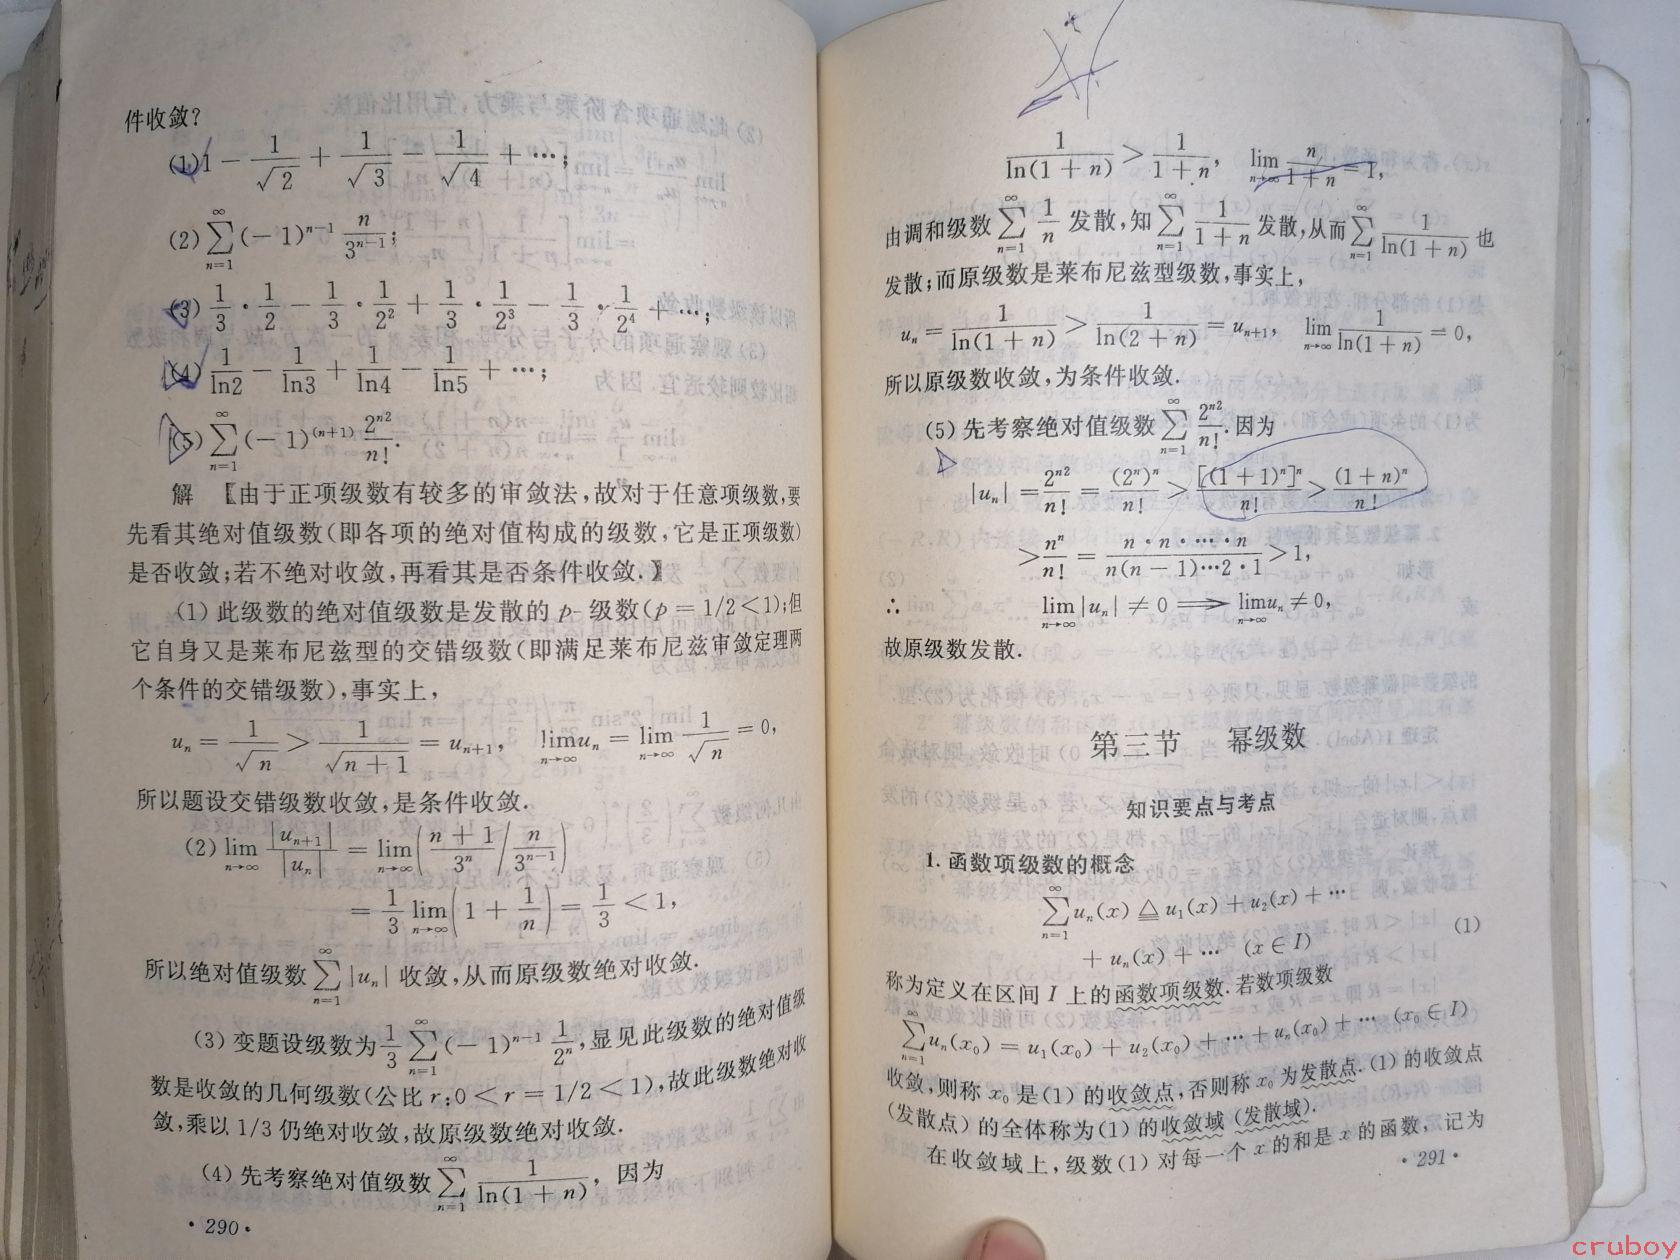 件收敛?
(1) 1 − 1/√2 + 1/√3 − 1/√4 + ⋯;
(2) ∑_{n=1}^{∞} (−1)^{n−1} n/3^{n−1};
(3) 1/3 · 1/2 − 1/3 · 1/2² + 1/3 · 1/2³ − 1/3 · 1/2⁴ + ⋯;
(4) 1/ln2 − 1/ln3 + 1/ln4 − 1/ln5 + ⋯;
(5) ∑_{n=1}^{∞} (−1)^{(n+1)} 2^{n²}/n!.
解 【由于正项级数有较多的审敛法,故对于任意项级数,要
先看其绝对值级数(即各项的绝对值构成的级数,它是正项级数)
是否收敛;若不绝对收敛,再看其是否条件收敛.】
(1) 此级数的绝对值级数是发散的 p- 级数(p = 1/2<1);但
它自身又是莱布尼兹型的交错级数(即满足莱布尼兹审敛定理两
个条件的交错级数),事实上,
u_n = 1/√n > 1/√(n+1) = u_{n+1}, lim_{n→∞} u_n = lim_{n→∞} 1/√n = 0,
所以题设交错级数收敛,是条件收敛.
(2) lim_{n→∞} |u_{n+1}|/|u_n| = lim_{n→∞} ( (n+1)/3^n / n/3^{n−1} )
= 1/3 lim_{n→∞} (1 + 1/n) = 1/3 < 1,
所以绝对值级数 ∑_{n=1}^{∞} |u_n| 收敛,从而原级数绝对收敛.
(3) 变题设级数为 1/3 ∑_{n=1}^{∞} (−1)^{n−1} 1/2^n,显见此级数的绝对值级
数是收敛的几何级数(公比 r:0 < r = 1/2 < 1),故此级数绝对收
敛,乘以 1/3 仍绝对收敛,故原级数绝对收敛.
(4) 先考察绝对值级数 ∑_{n=1}^{∞} 1/ln(1 + n), 因为
· 290 ·
1/ln(1 + n) > 1/(1 + n), lim_{n→∞} n/(1 + n) = 1,
由调和级数 ∑_{n=1}^{∞} 1/n 发散,知 ∑_{n=1}^{∞} 1/(1 + n) 发散,从而 ∑_{n=1}^{∞} 1/ln(1 + n) 也
发散;而原级数是莱布尼兹型级数,事实上,
u_n = 1/ln(1 + n) > 1/ln(2 + n) = u_{n+1}, lim_{n→∞} 1/ln(1 + n) = 0,
所以原级数收敛,为条件收敛.
(5) 先考察绝对值级数 ∑_{n=1}^{∞} 2^{n²}/n!.因为
|u_n| = 2^{n²}/n! = (2^n)^n/n! > [(1 + 1)^n]^n/n! > (1 + n)^n/n!
> n^n/n! = n · n · ⋯ · n/n(n − 1)⋯2 · 1 > 1,
∴ lim_{n→∞} |u_n| ≠ 0 ⟹ lim_{n→∞} u_n ≠ 0,
故原级数发散.
第三节 幂级数
知识要点与考点
1. 函数项级数的概念
∑_{n=1}^{∞} u_n(x) ≜ u_1(x) + u_2(x) + ⋯
+ u_n(x) + ⋯ (x ∈ I) (1)
称为定义在区间 I 上的函数项级数.若数项级数
∑_{n=1}^{∞} u_n(x_0) = u_1(x_0) + u_2(x_0) + ⋯ + u_n(x_0) + ⋯ (x_0 ∈ I)
收敛,则称 x_0 是(1) 的收敛点,否则称 x_0 为发散点.(1) 的收敛点
(发散点) 的全体称为(1) 的收敛域 (发散域).
在收敛域上,级数(1) 对每一个 x 的和是 x 的函数,记为
· 291 ·
cruboy